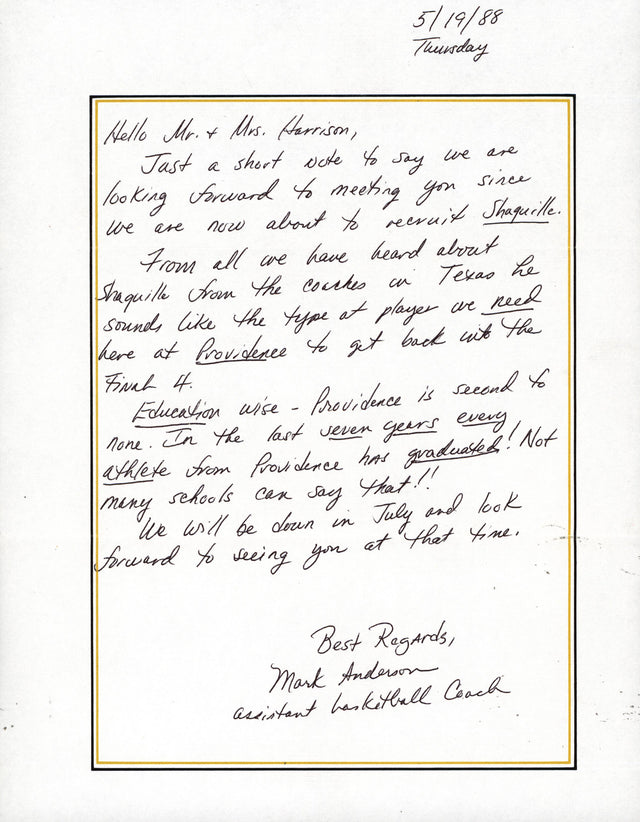 5/19/88
Thursday
Hello Mr. + Mrs. Harrison,
Just a short note to say we are
looking forward to meeting you since
we are now about to recruit Shaquille.
From all we have heard about
Shaquille from the coaches in Texas he
sounds like the type at player we need
here at Providence to get back into the
Final 4.
Education wise - Providence is second to
none. In the last seven years every
athlete from Providence has graduated! Not
many schools can say that!!
We will be down in July and look
forward to seeing you at that time.
Best Regards,
Mark Anderson
assistant basketball Coach